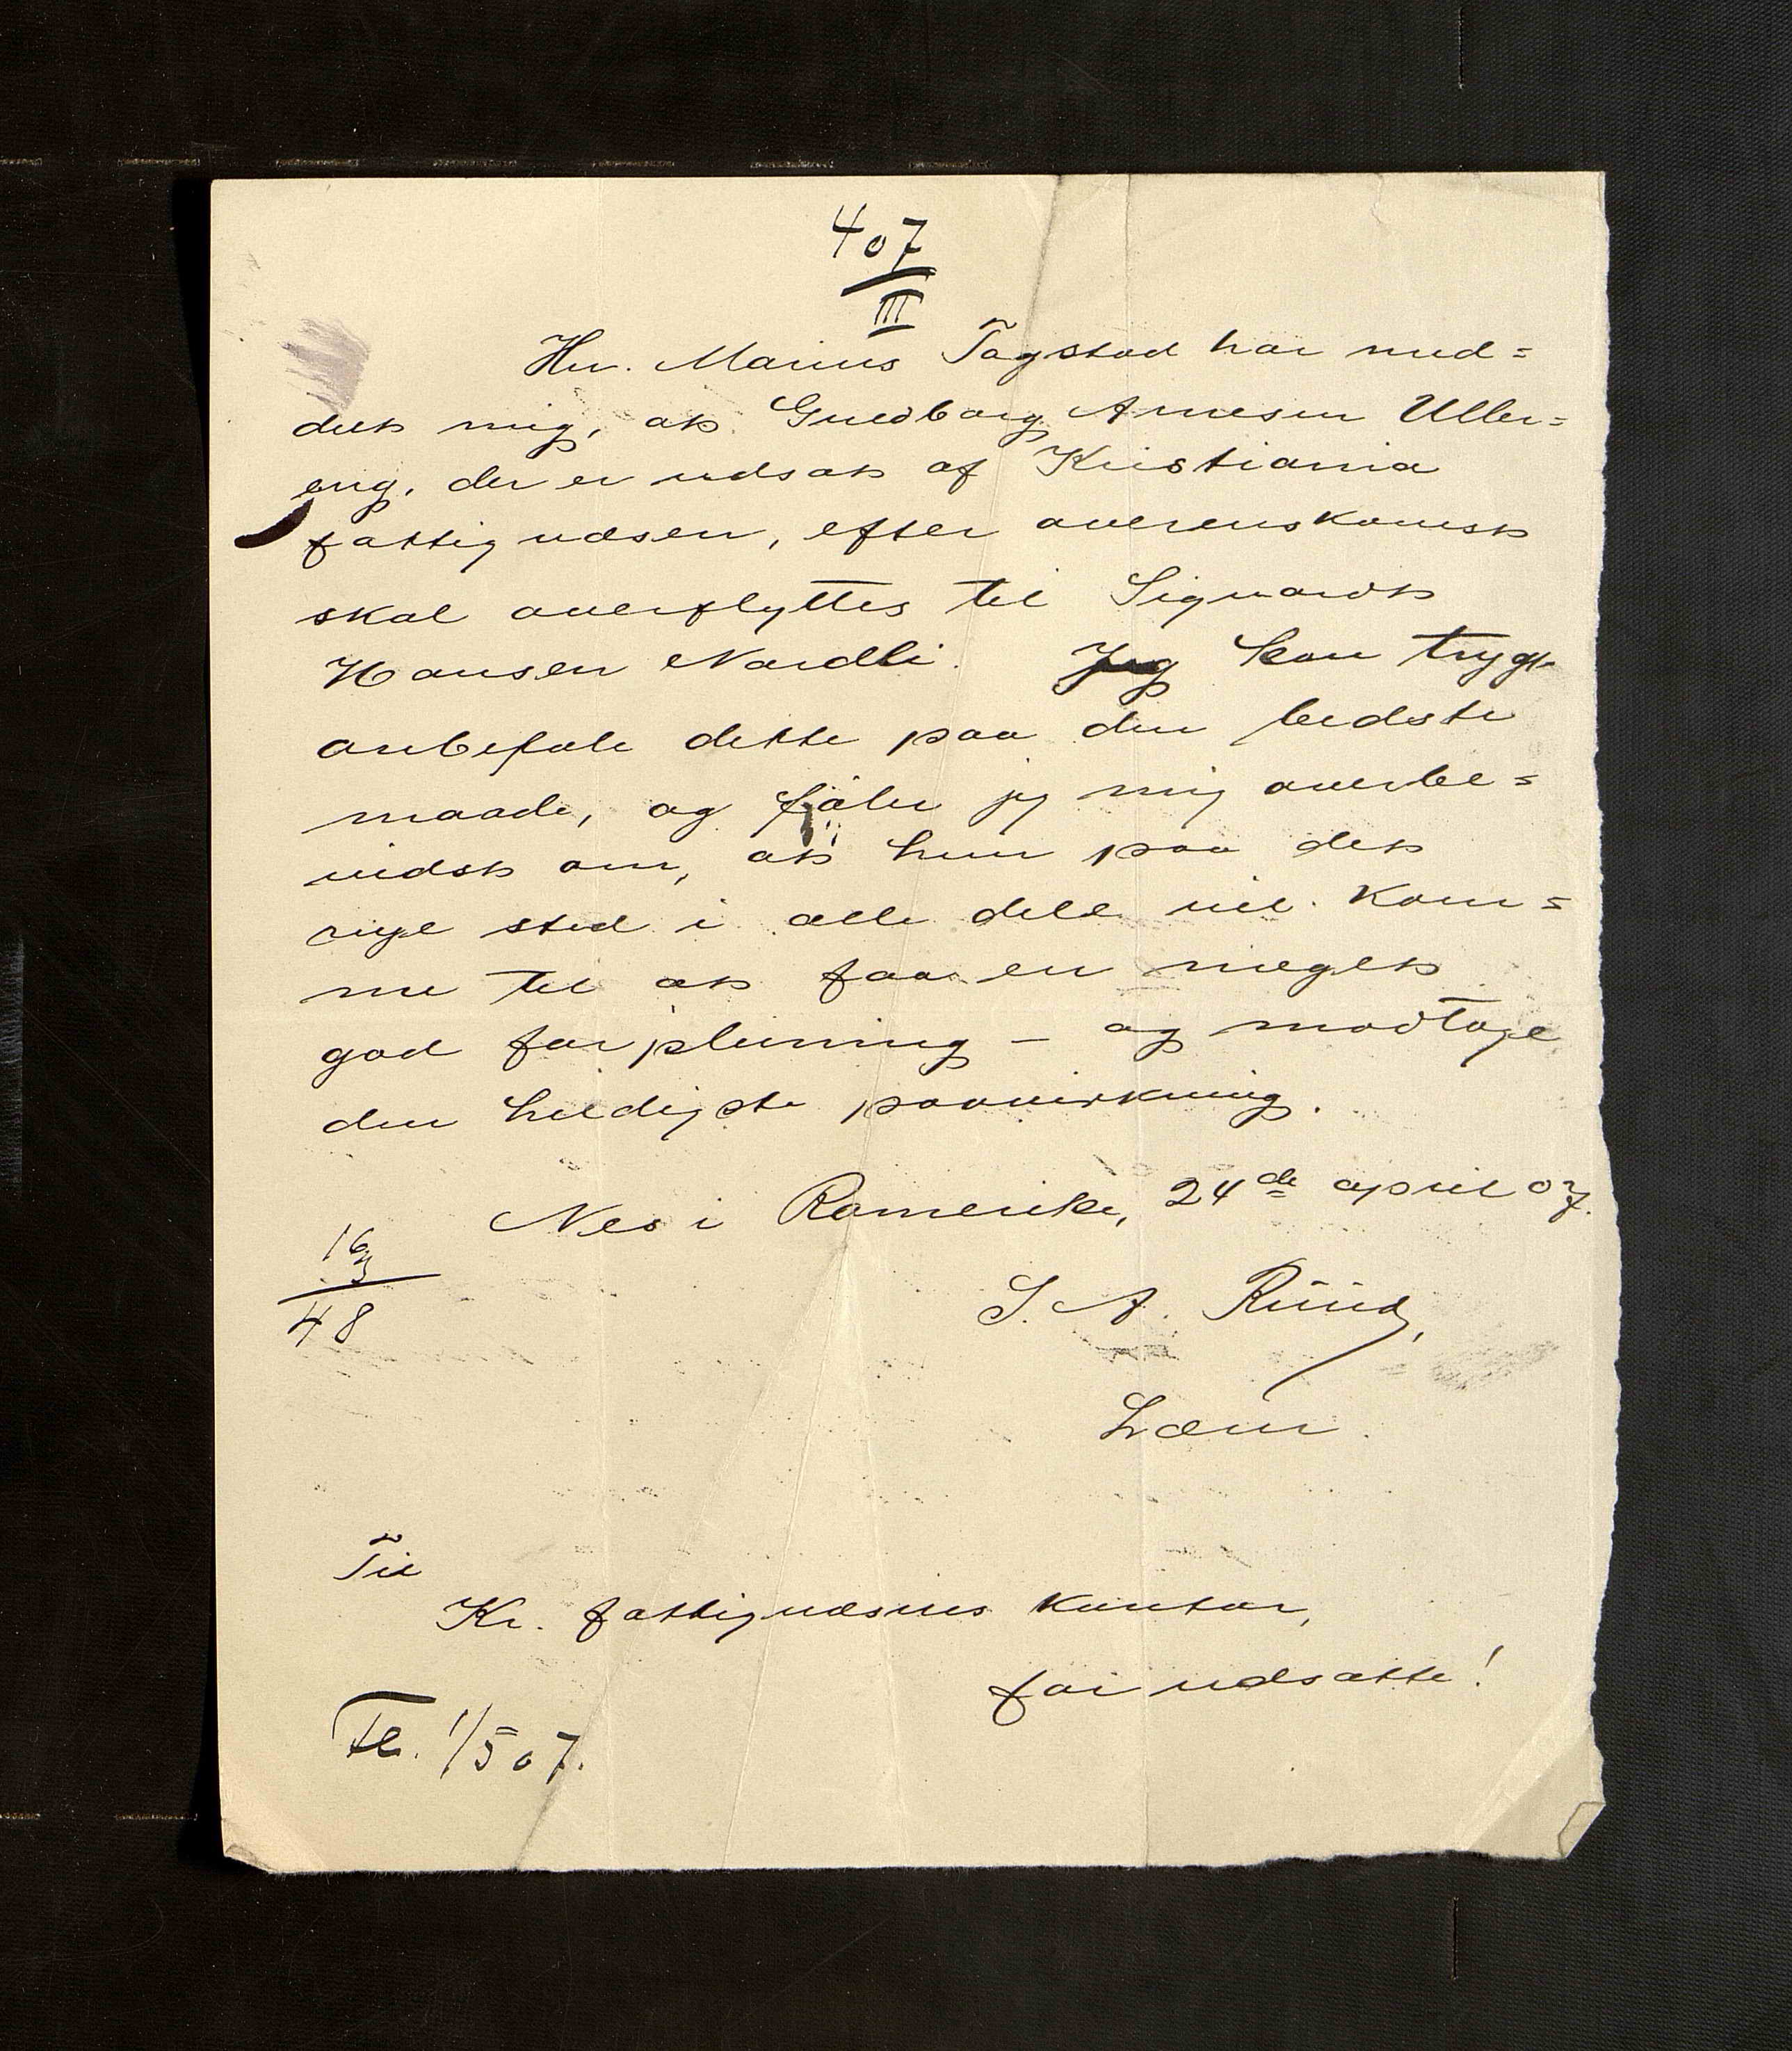 407
III
Hr. Marius Fagstad har med=
delt mig, at Gudborg Arnesen Uller=
eng, der er udsat af Kristiania
fattigvæsen, efter overenskomst
skal overflyttes til Sigvardt
Hansen Nordli. Jeg kan trygt
anbefale dette paa den bedste
maade, og føler jeg mig overbe=
vidst om, at hun paa det
nye sted i alle dele vil kom=
me til at faa en meget
god forpleining – og modtage
den heldigste paavirkning.
Nes i Romerike, 24de april 07.
16
3
48
S. A. Ruud,
Lærer.
Til
Kr. fattigvæsens kontor,
for udsatte!
1/5 07.